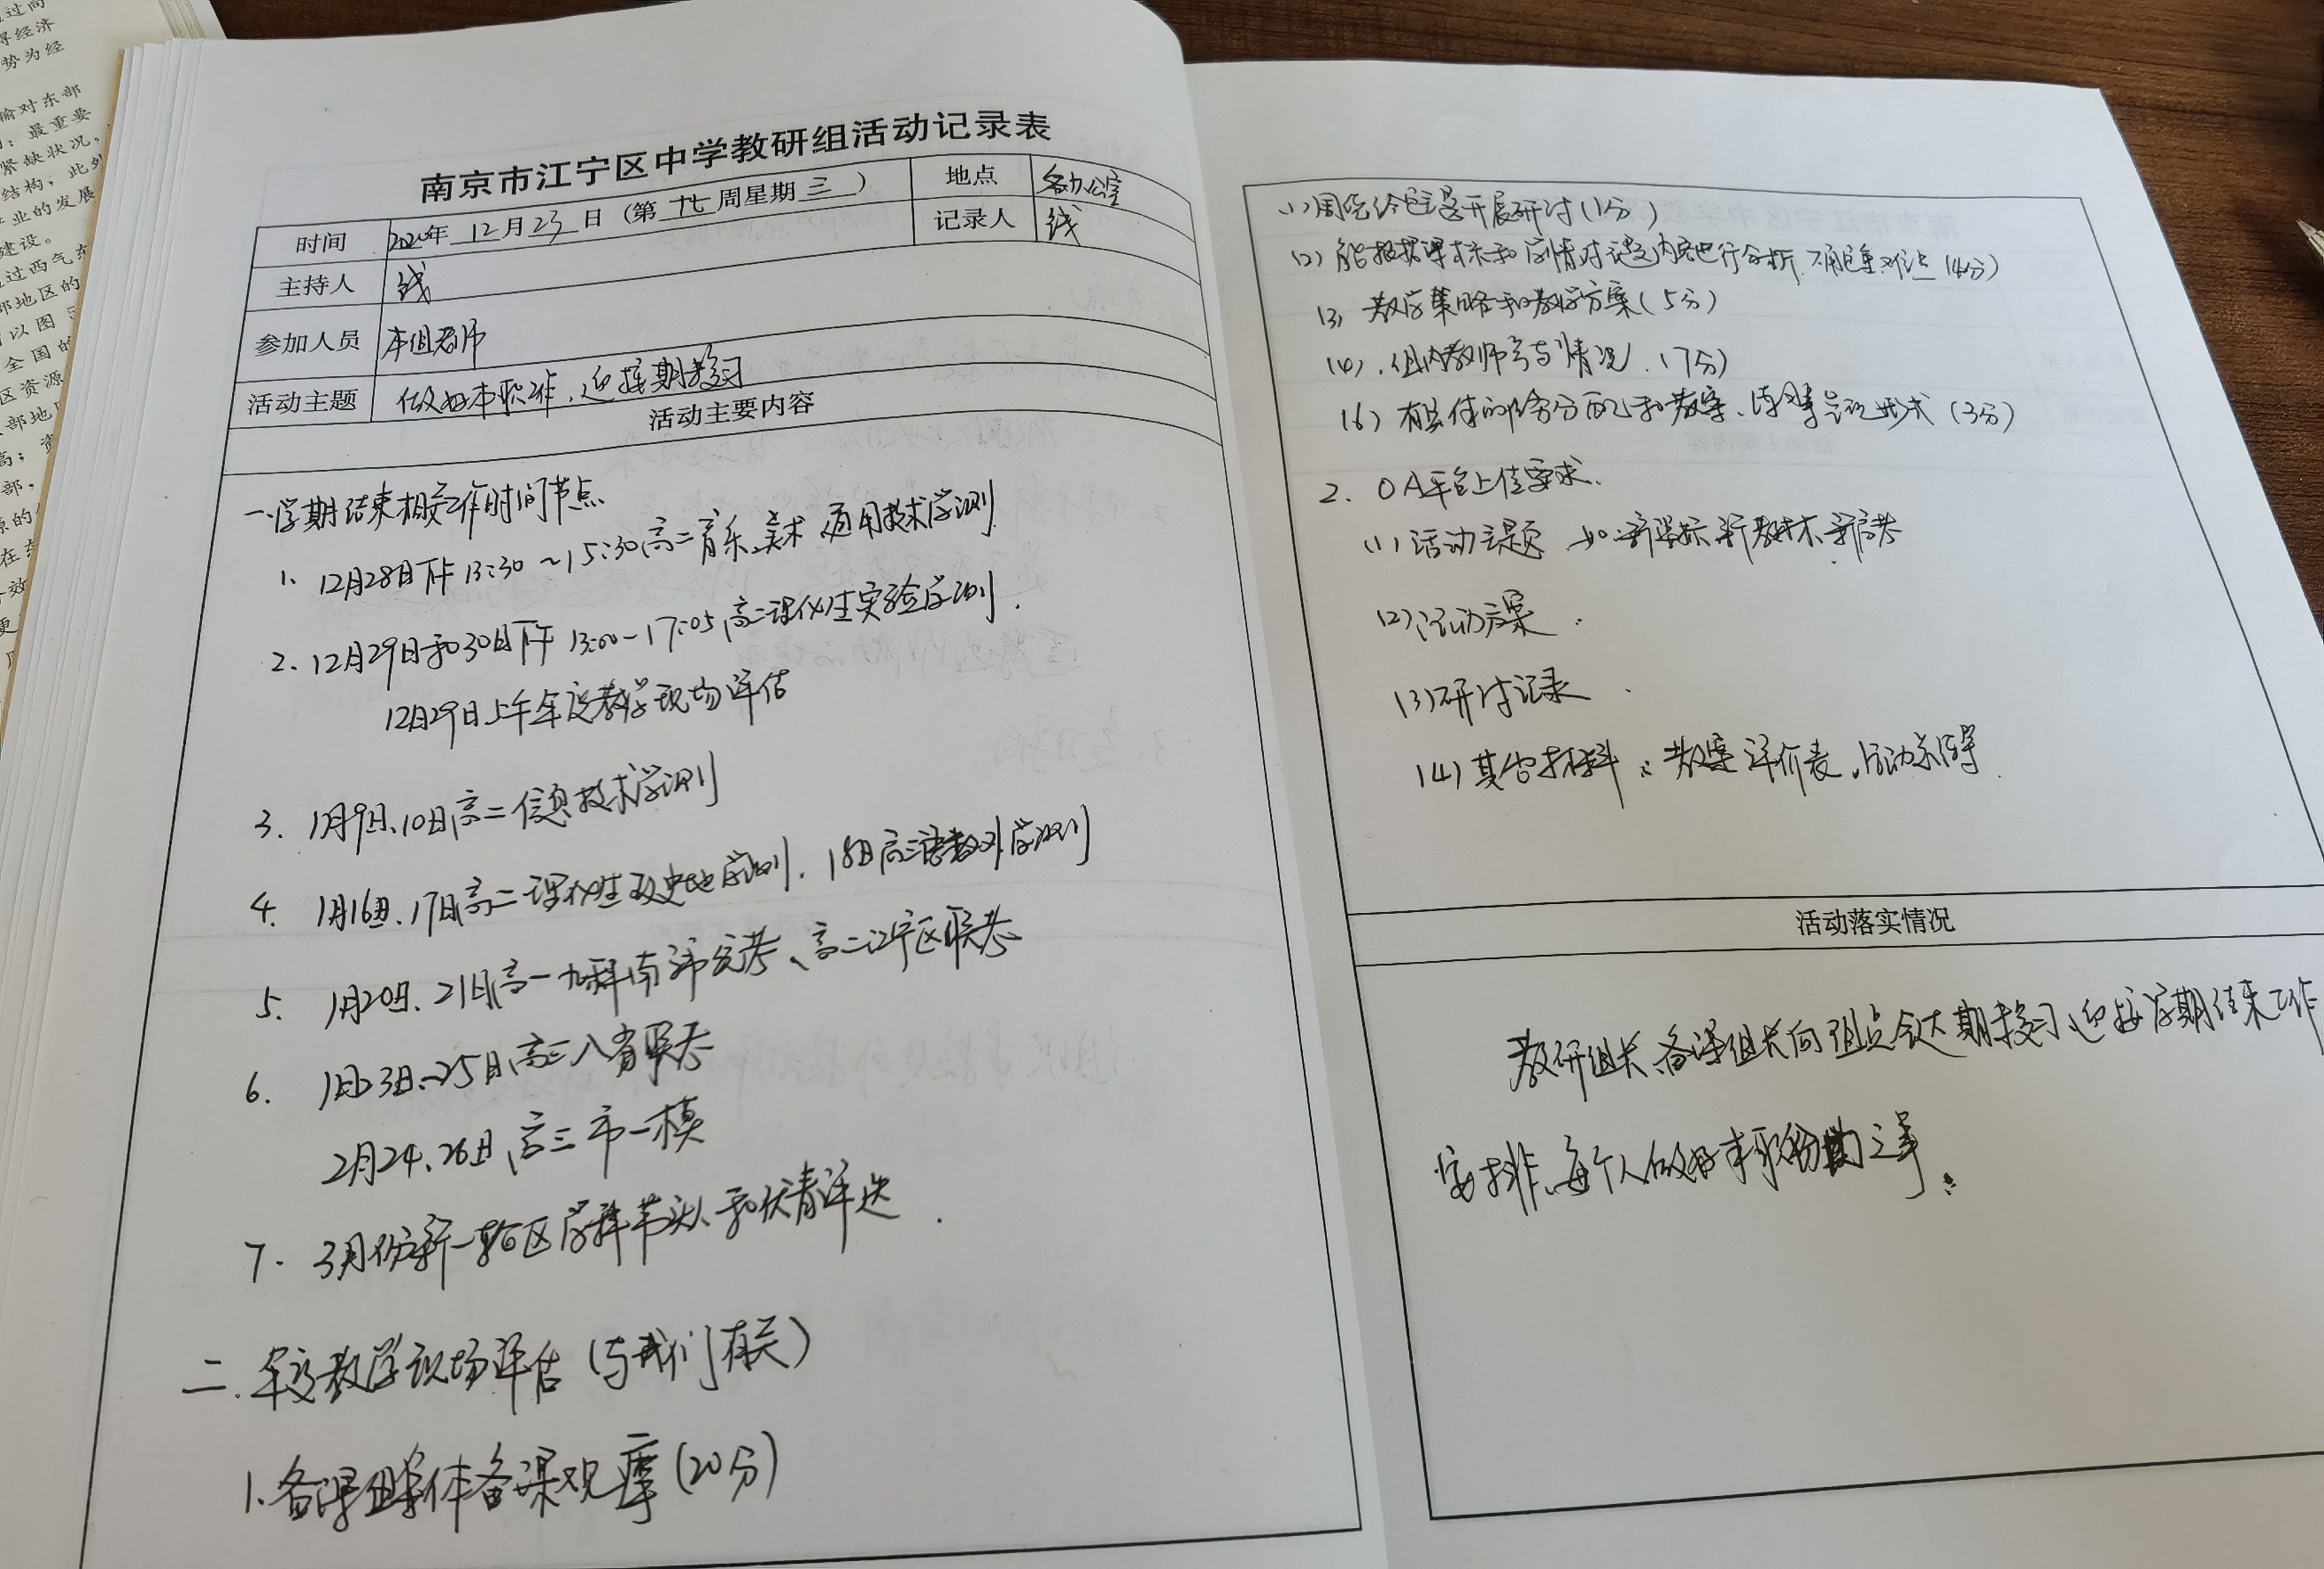 过向
得经济
势为经
输对东部
最重要
紧缺状况。
结构，此外
业的发展
建设。
过西气东
部地区的
以图5
全国的
区资源
部地
高；资
部，
源的
在东
效
更
南京市江宁区中学教研组活动记录表
时间 2020年 12月23日（第十七周星期三） 地点 各办公室
主持人 钱 记录人 钱
参加人员 本组老师
活动主题 做好本职工作，迎接期末复习
活动主要内容
一、学期结束相关工作时间节点
1、12月28日下午13:30～15:30高二音乐、美术、通用技术学测
2、12月29日和30日下午13:00-17:05高二理化生实验学测．
12月29日上午年度教学现场评估
3．1月9日、10日高二信息技术学测
4．1月16日、17日高二理化生政史地学测．18日高三语数外学测
5．1月20日、21日高一九科南京市统考、高二江宁区联考
6．1月23日～25日高三八省联考
2月24、26日高三市一模
7．3月份新一轮区学科带头人和优青评选．
二．年度教学现场评估（与我们有关）
1．备课组集体备课观摩（20分）
(1) 围绕给定主题开展研讨（1分）
(2) 能根据课标和学情对课题内容进行分析，确定重难点（4分）
(3) 教学策略和教学方案（5分）
(4)．组内教师参与情况．（7分）
(6) 有具体的任务分配和教案、
（3分）
2．OA平台上传要求．
(1) 活动主题 如：新课标新教材新高考
(2) 活动方案．
(3) 研讨记录．
(4) 其他材料：教案、评价表、活动
活动落实情况
教研组长、备课组长向组员传达期末复习、迎接学期结束工作
安排，每个人做好本职份内之事。